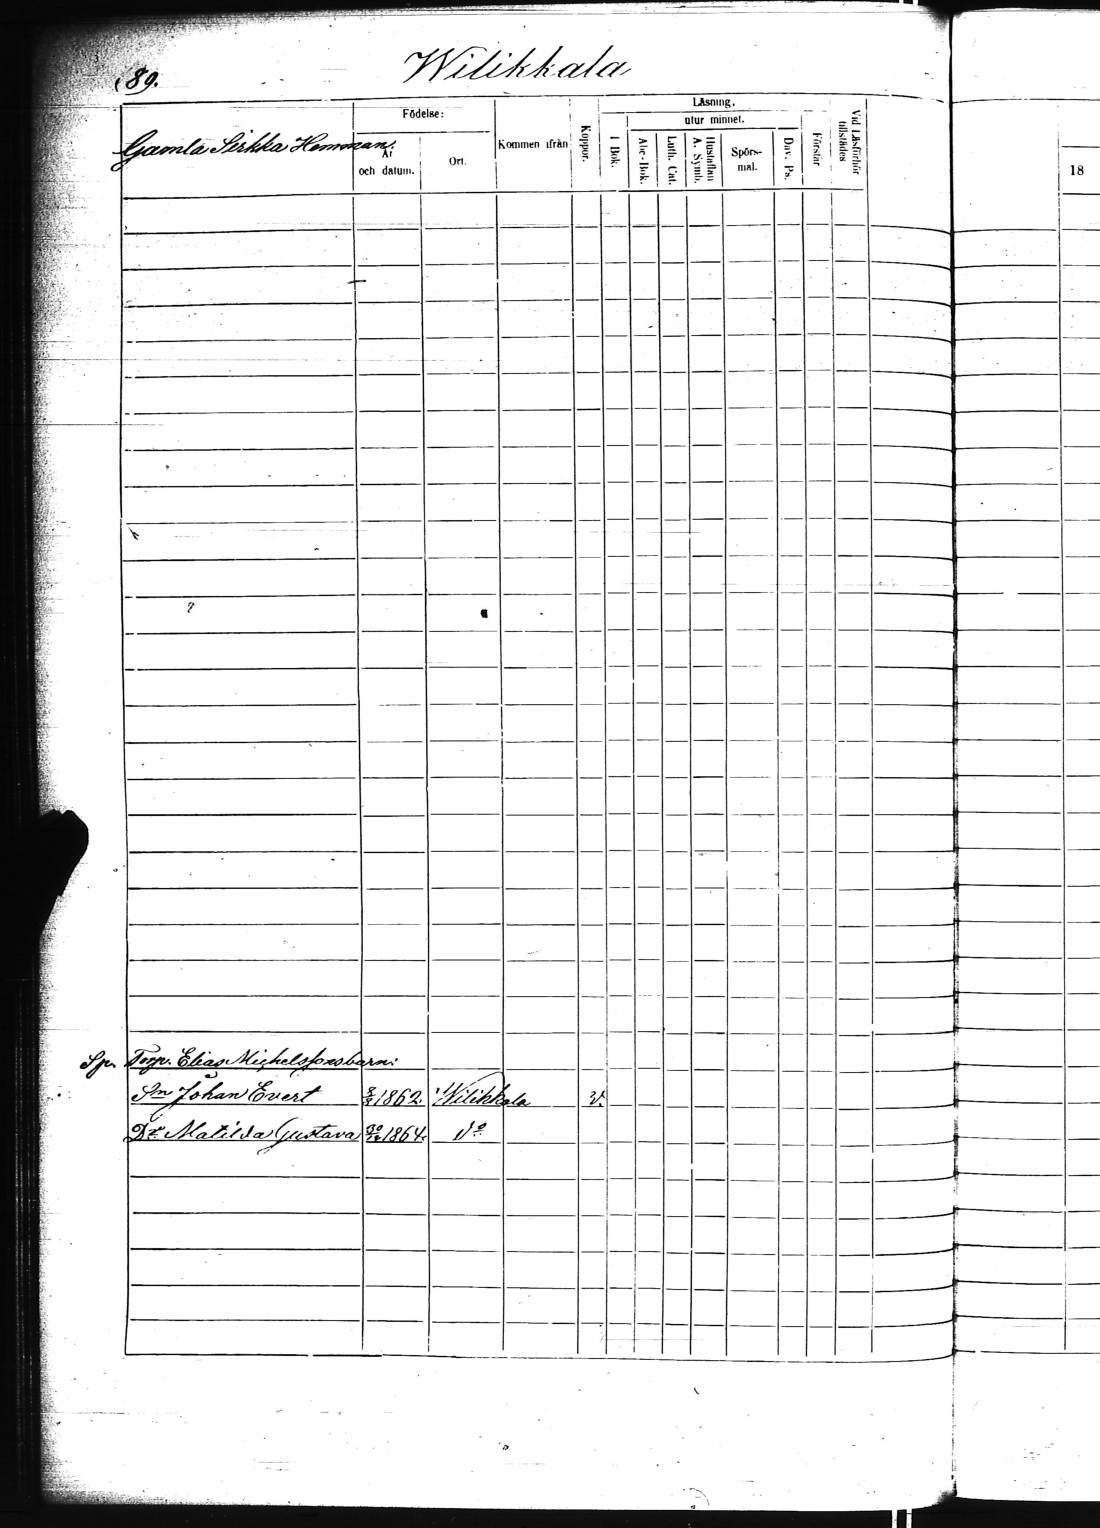 89.
Wilikkala
Gamla Sirkka Hemman.
Födelse:
År och datum.
Ort.
Kommen ifrån
Koppor.
Läsning.
I Bok.
utur minnet.
Abc-Bok.
Luth. Cat.
Hustaflan A. Symb.
Spörsmål.
Dav. Ps.
Förstår
Vid Läsförhör tillstädes
18
Sp. Torp. Elias Michelssons barn:
Sn Johan Evert 1862. Wilikkala v.
Dr Matilda Gustava 1864. do